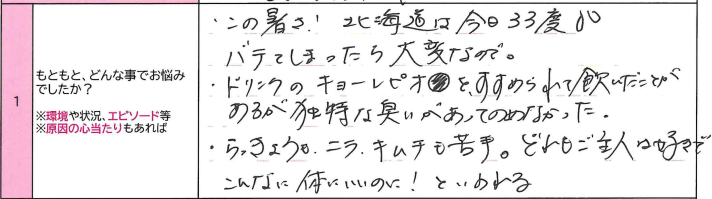 1
もともと、どんな事でお悩み
でしたか？
※環境や状況、エピソード等
※原因の心当たりもあれば
・この暑さ！ 北海道は今日33度
バテてしまったら大変なので。
・ドリンクの キョーレピオを、すすめられて飲いだことが
あるが独特な臭いがあってのめなかった。
・らっきょうも、ニラ、キムチも苦手。どれもご主人は好きで
こんなに体にいいのに！といわれる